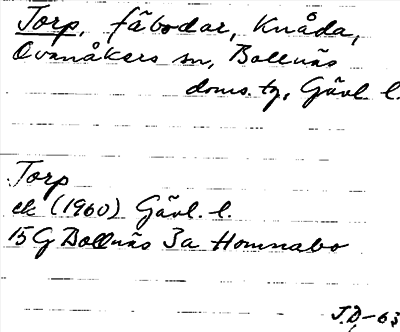 Torp, fäbodar, Knåda,
Ovanåkers sn, Bollnäs
doms. tg, Gävl l.
Torp
ek (1960) Gävl. l.
15G Bollnäs 3a Homnabo
J.D,-63